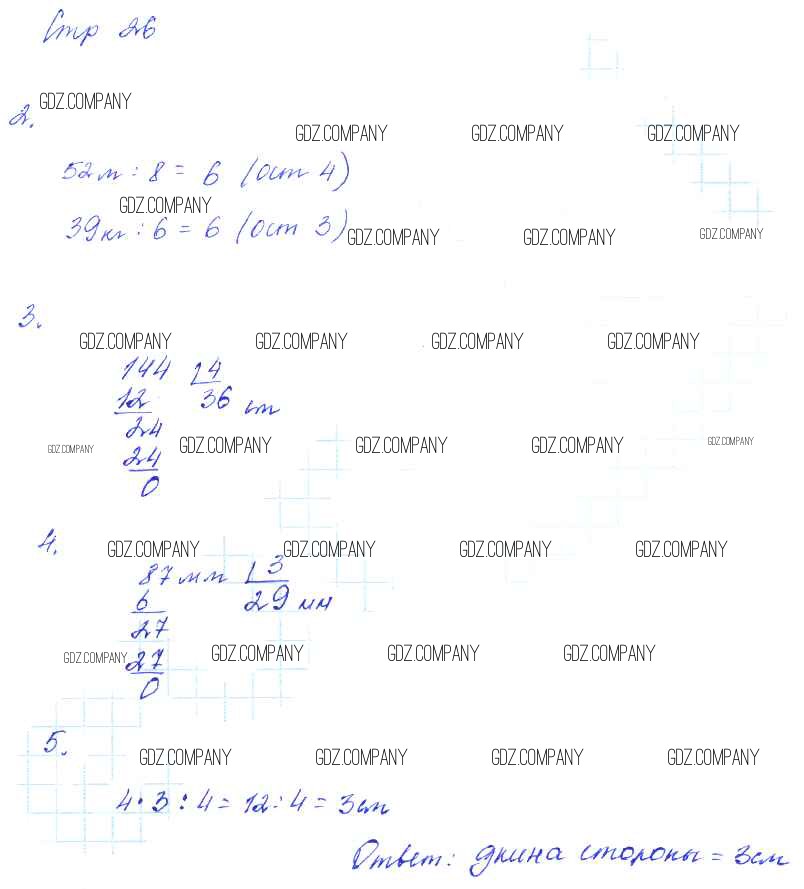 Стр 26
GDZ.COMPANY
2.
GDZ.COMPANY GDZ.COMPANY GDZ.COMPANY
52м : 8 = 6 (ост 4)
GDZ.COMPANY
39кг : 6 = 6 (ост 3)
GDZ.COMPANY GDZ.COMPANY GDZ.COMPANY
3.
GDZ.COMPANY GDZ.COMPANY GDZ.COMPANY GDZ.COMPANY
144 4
12 36 см
24
GDZ.COMPANY GDZ.COMPANY GDZ.COMPANY GDZ.COMPANY GDZ.COMPANY
24
0
4.
GDZ.COMPANY GDZ.COMPANY GDZ.COMPANY GDZ.COMPANY
87 мм 3
6 29 мм
27
GDZ.COMPANY GDZ.COMPANY GDZ.COMPANY GDZ.COMPANY
27
0
5.
GDZ.COMPANY GDZ.COMPANY GDZ.COMPANY GDZ.COMPANY
4 · 3 : 4 = 12 : 4 = 3см
Ответ: длина стороны = 3см